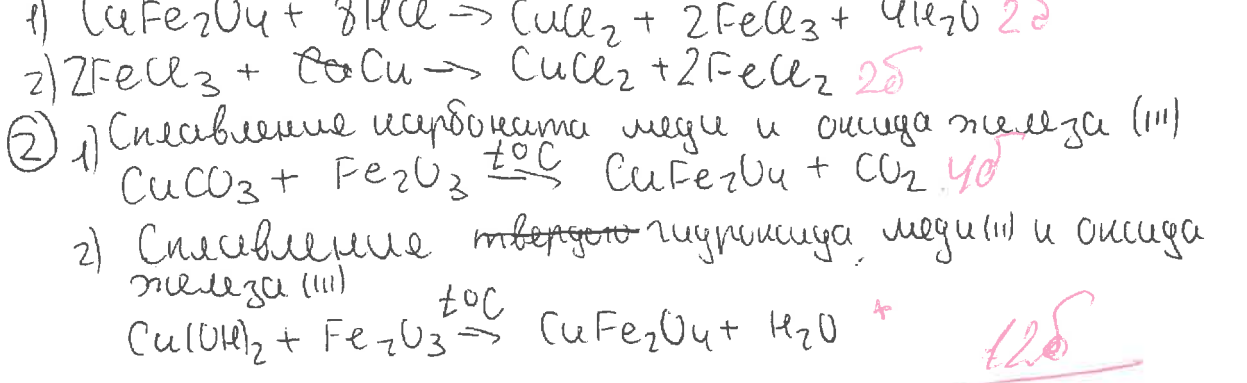 1) CuFe₂O₄ + 8HCl → CuCl₂ + 2FeCl₃ + 4H₂O 2б
2) 2FeCl₃ + Cu → CuCl₂ + 2FeCl₂ 2б
② 1) Сплавление карбоната меди и оксида железа (III)
CuCO₃ + Fe₂O₃ t°C → CuFe₂O₄ + CO₂ 4б
2) Сплавление твердого гидроксида меди (II) и оксида
железа (III)
Cu(OH)₂ + Fe₂O₃ t°C → CuFe₂O₄ + H₂O +
12б